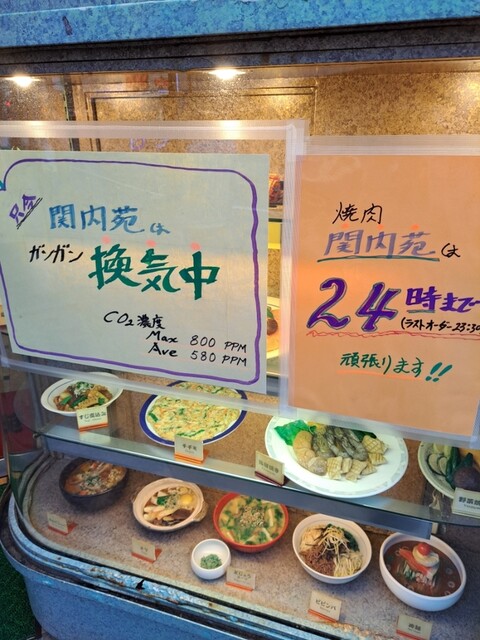 只今
関内苑は
ガンガン 換気中
CO₂濃度
Max 800 PPM
Ave 580 PPM
焼肉
関内苑は
24時まで
(ラストオーダー23:30
頑張ります!!
すじ煮込み
海鮮焼
野菜焼
ビビンバ
冷麺